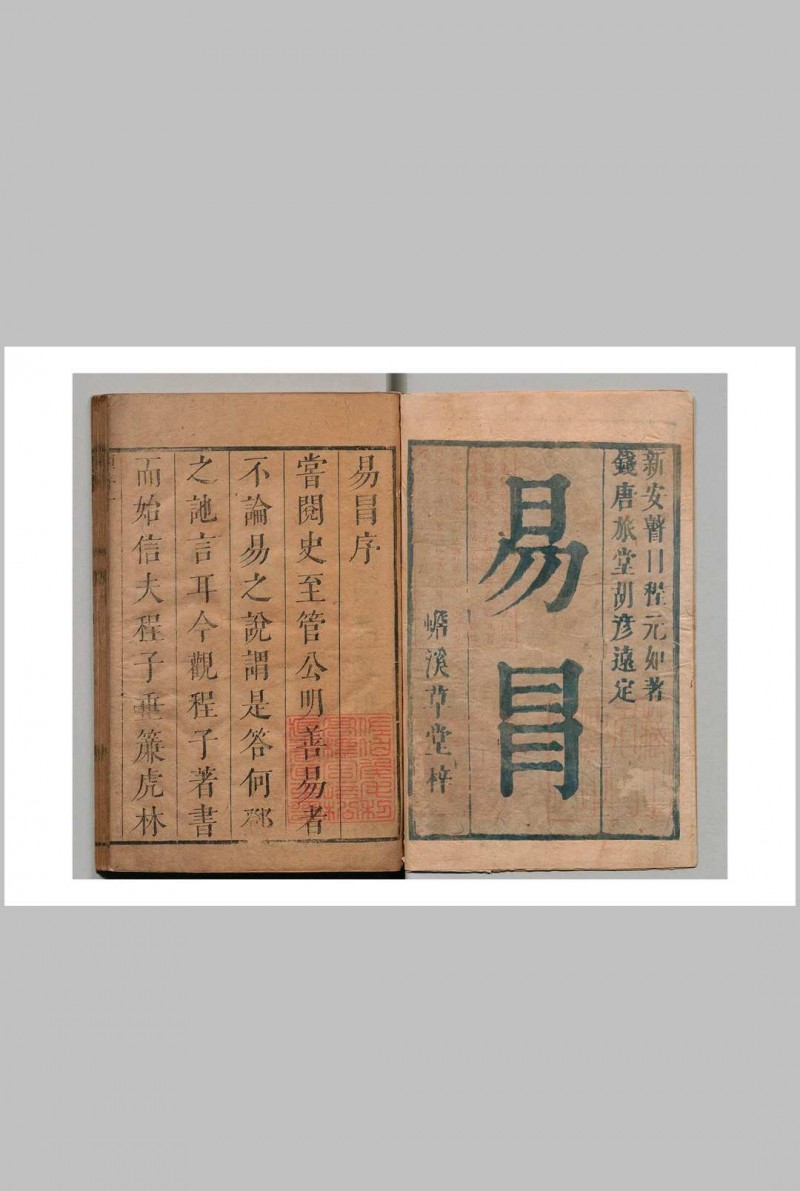 新安暜㒳程元如著
錢唐旅堂胡彥遠定
易冒
蟾溪草堂梓
易冒序
嘗閱史至管公明善易者
不論易之說謂是答何鄧
之訑言耳今觀程子著書
而始信夫程子垂簾虎林